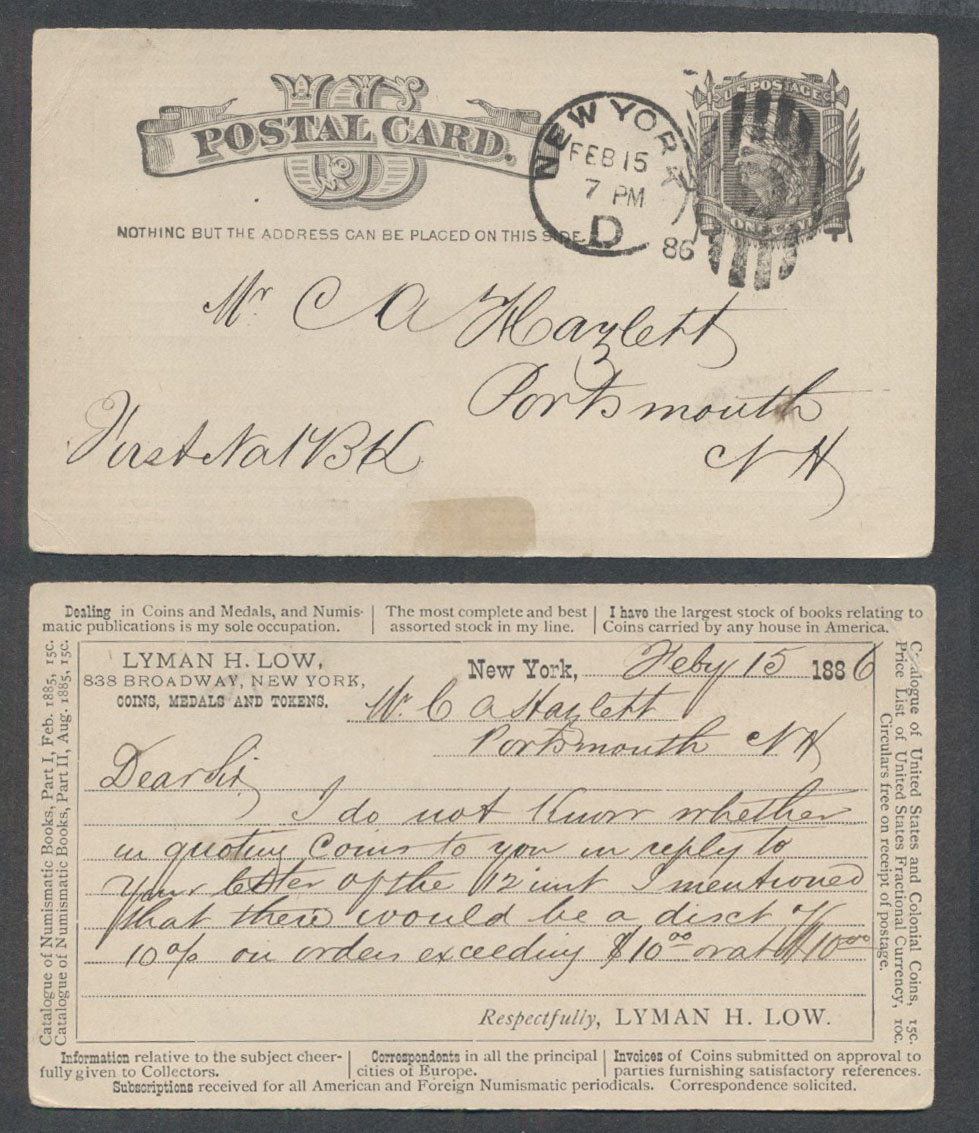 US
POSTAL CARD.
NOTHING BUT THE ADDRESS CAN BE PLACED ON THIS SIDE.
NEW YORK
FEB 15
7 PM
D
86
U.S. POSTAGE
ONE CENT
Mr C A Hazlett
Portsmouth
First Nat BK
N H
Dealing in Coins and Medals, and Numis-
matic publications is my sole occupation.
The most complete and best
assorted stock in my line.
I have the largest stock of books relating to
Coins carried by any house in America.
Catalogue of Numismatic Books, Part I, Feb. 1885, 15c.
Catalogue of Numismatic Books, Part II, Aug. 1885, 15c.
LYMAN H. LOW,
838 BROADWAY, NEW YORK,
COINS, MEDALS AND TOKENS.
New York, Feby 15 1886
Mr. C A Hazlett
Portsmouth NH
Dear Sir
I do not Know whether
in quoting Coins to you in reply to
Your letter of the 12 inst I mentioned
that there would be a disct of
10% on orders exceeding $10 00 or at $10 00
Respectfully, LYMAN H. LOW.
Catalogue of United States and Colonial Coins, 15c.
Price List of United States Fractional Currency, 10c.
Circulars free on receipt of postage.
Information relative to the subject cheer-
fully given to Collectors.
Correspondents in all the principal
cities of Europe.
Invoices of Coins submitted on approval to
parties furnishing satisfactory references.
Subscriptions received for all American and Foreign Numismatic periodicals. Correspondence solicited.